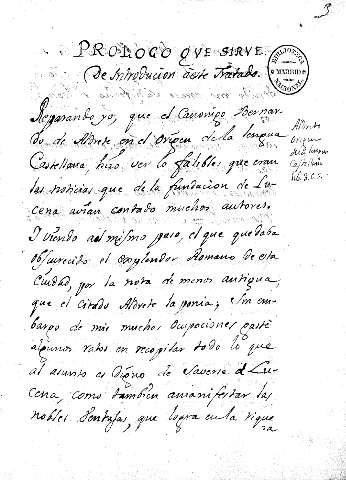 3
PROLOGO QVE SIRVE
De Introducion a este Tratado.
BIBLIOTECA NACIONAL
MADRID
Reparando yo, que el Canonigo Bernar-
do de Aldrete en el Origen de la lengua
Castellana hizo ver lo falibles que eran
las noticias que de la fundacion de Lu-
cena avian contado muchos autores
Aldrete
Origen
de la lengua
Castellana
lib. 3. C. 2.
I viendo al mismo paso, el que quedaba
obscurecido el esplendor Romano de esta
Ciudad, por la nota de menos antigua,
que el citado Aldrete la ponia; Sin em-
bargo de mis muchos ocupaciones gasté
algunos ratos en recopilar todo lo que
al asunto es Digno de saverse d Lu-
cena, como tambien amanifestar las
nobles Ventajas, que logra en la rique
ra